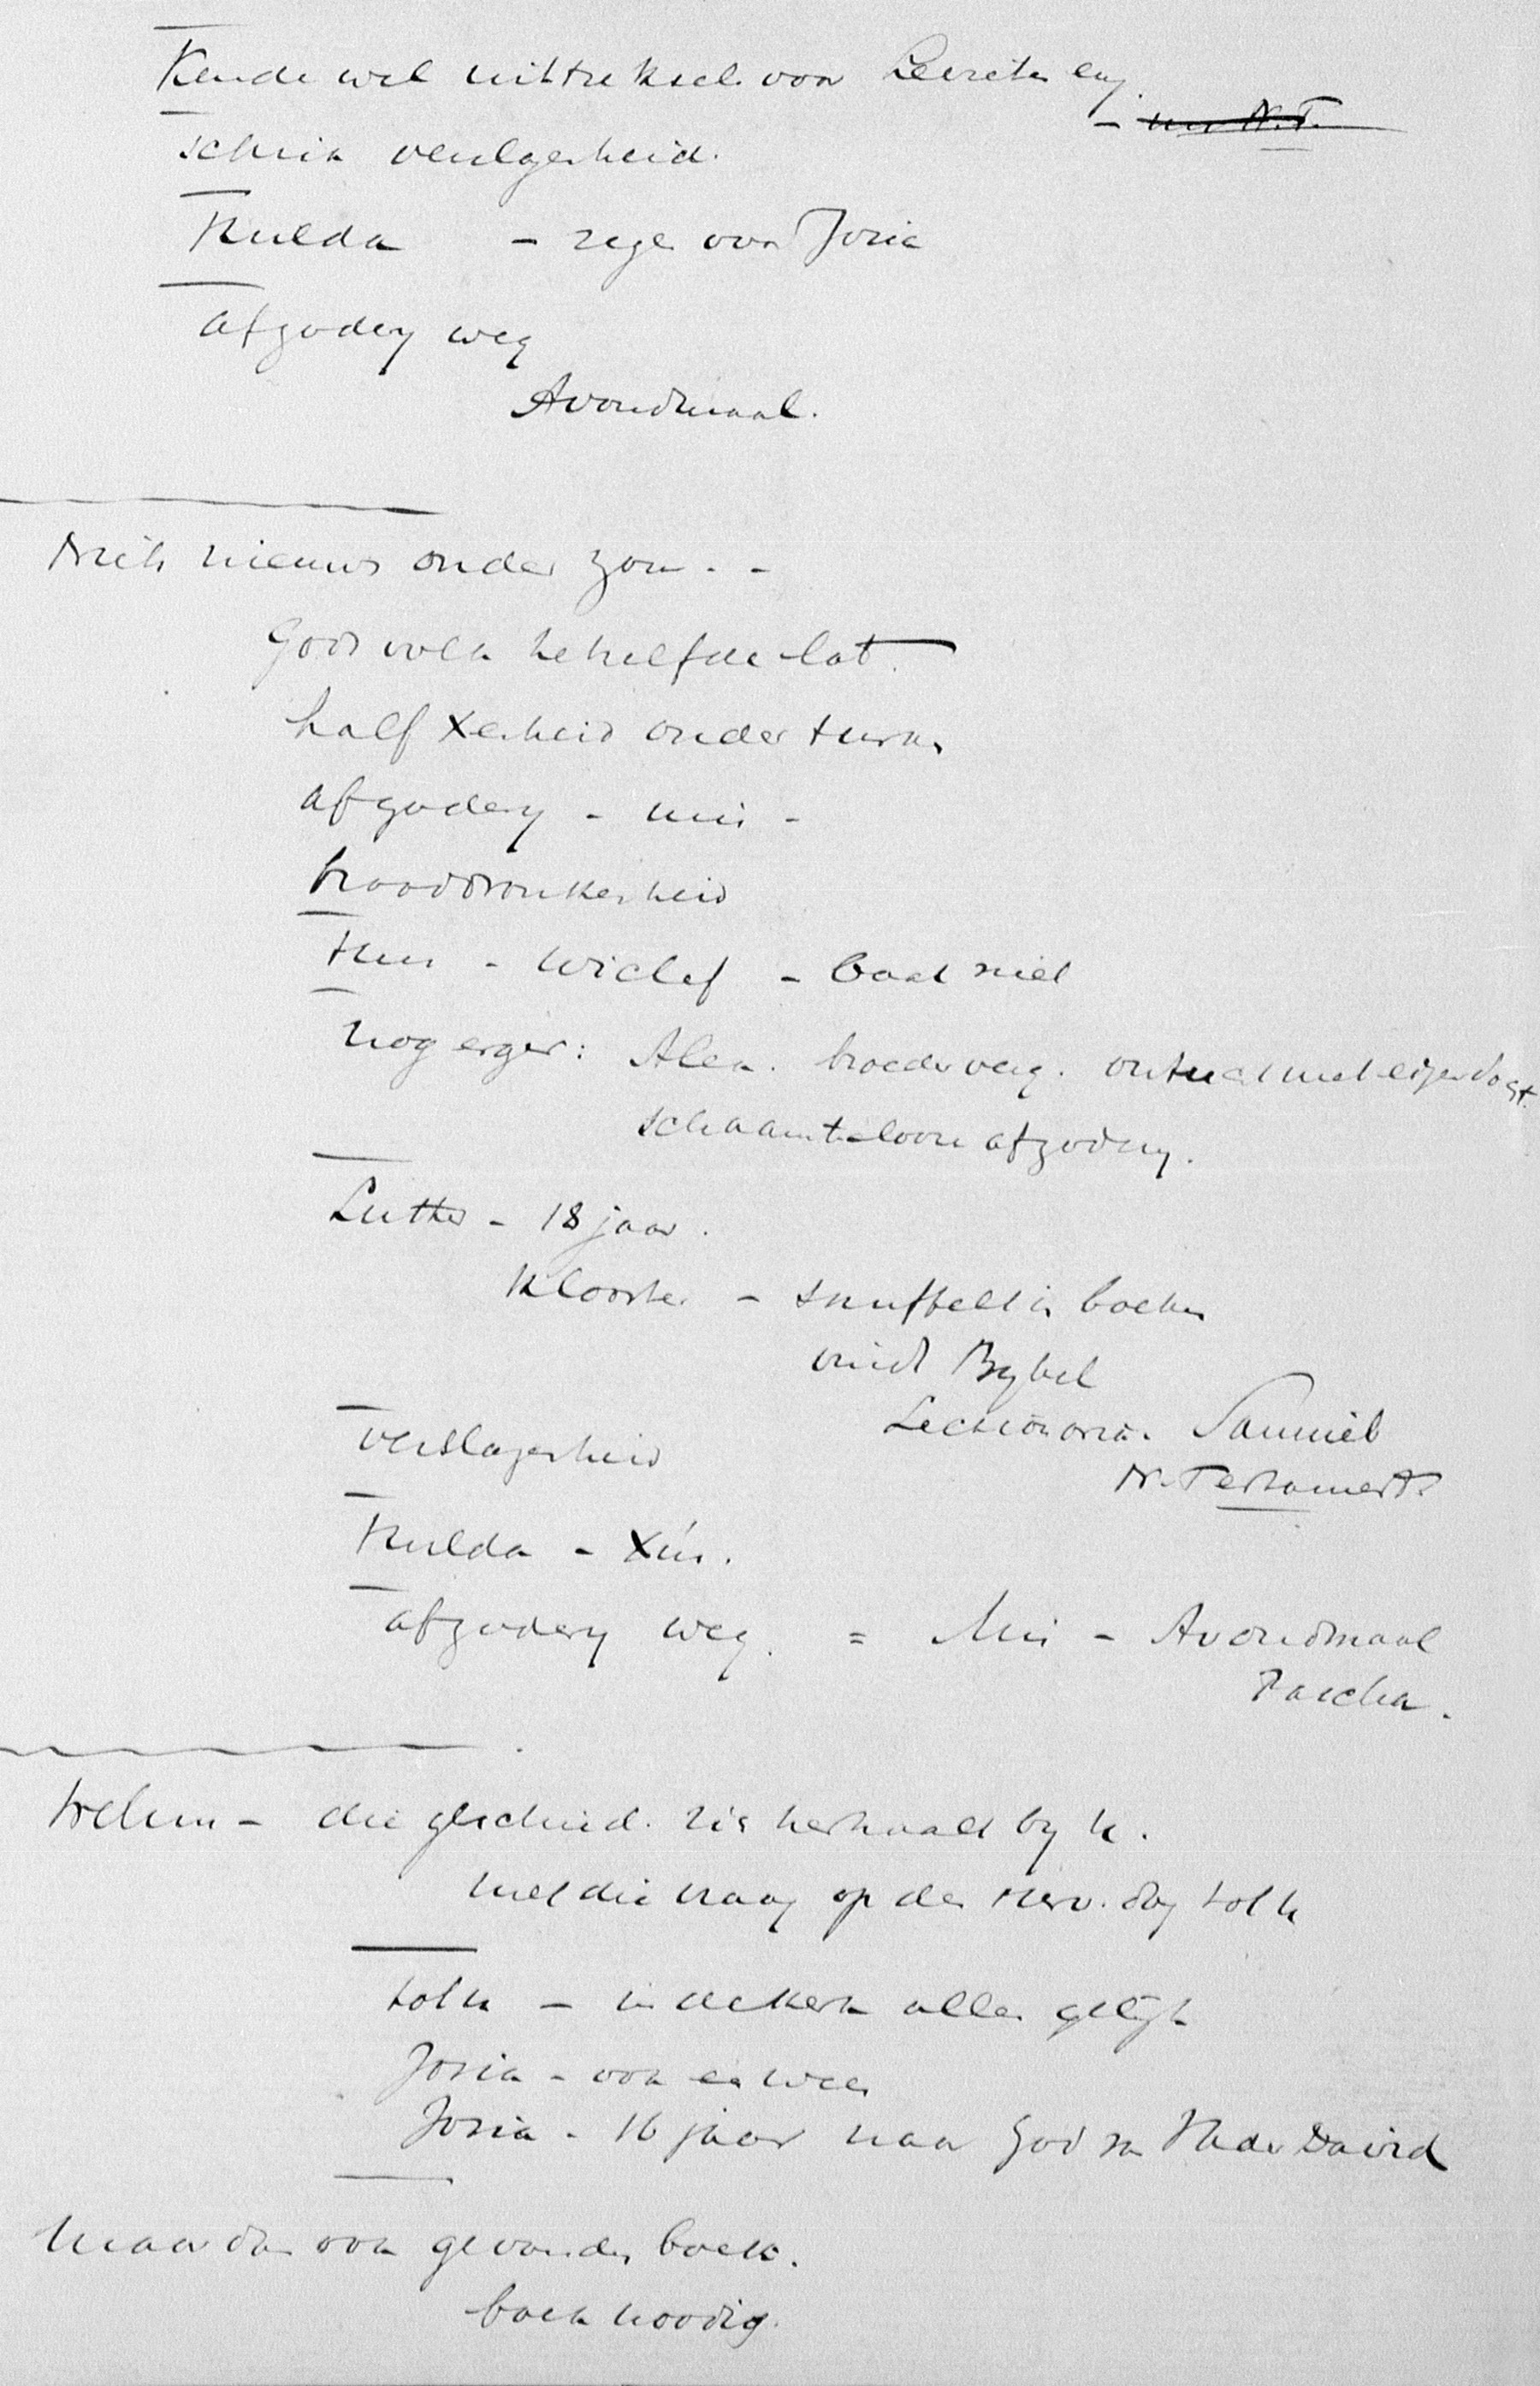 Kende wel uittreksel. van Levieten enz.
- uit N.T.
schrik verslagenheid.
Hulda - zege over Josia
afgodery weg
Avondmaal.
Niets nieuws onder zon - -
Gods volk hetzelfde lot.
half Xenheid onder turken
afgodery - mis -
brooddronkenheid
Hus - Wiclef - baat niet
nog erger: Alex. broederverg. ontucht met eigen dogt.
schaamteloose afgodery.
Luther - 18 jaar.
Klooster - snuffelt in boeken
vindt Bybel
Lectionaria. Samuel
N. Testament?
verslagenheid
Hulda - Xus.
afgodery weg. = Mis - Avondmaal
Pascha.
Welnu - die geschied. zie herhaald by u.
met die vraag op den herv. dag tot u
tot u - in de kerk alles gelijk
Josia - ook een wees
Josia - 16 jaar naar God zn Vader David
Maar dan ook gevonden boek.
boek noodig.